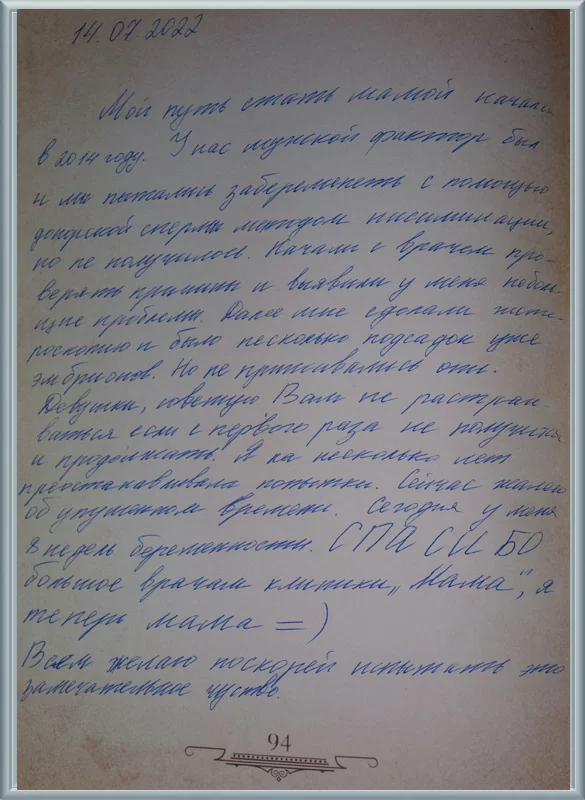 14.07.2022
Мой путь стать мамой начался
в 2014 году. У нас мужской фактор был
и мы пытались забеременеть с помощью
донорской спермы методом инсиминации,
но не получилось. Начали с врачем про-
верять причины и выявили у меня неболь-
щие проблемы. Далее мне сделали гисте-
роскопию и было несколько подсадок уже
эмбрионов. Но не приживались они.
Девушки, советую Вам не растраи-
ваться если с первого раза не получится
и продолжать. Я на несколько лет
преостанавливала попытки. Сейчас жалею
об упущенном времени. Сегодня у меня
8 недель беременности. СПАСИБО
большое врачам клиники „Мама", я
теперь мама =)
Всем желаю поскорей испытать это
замечательное чуство.
94